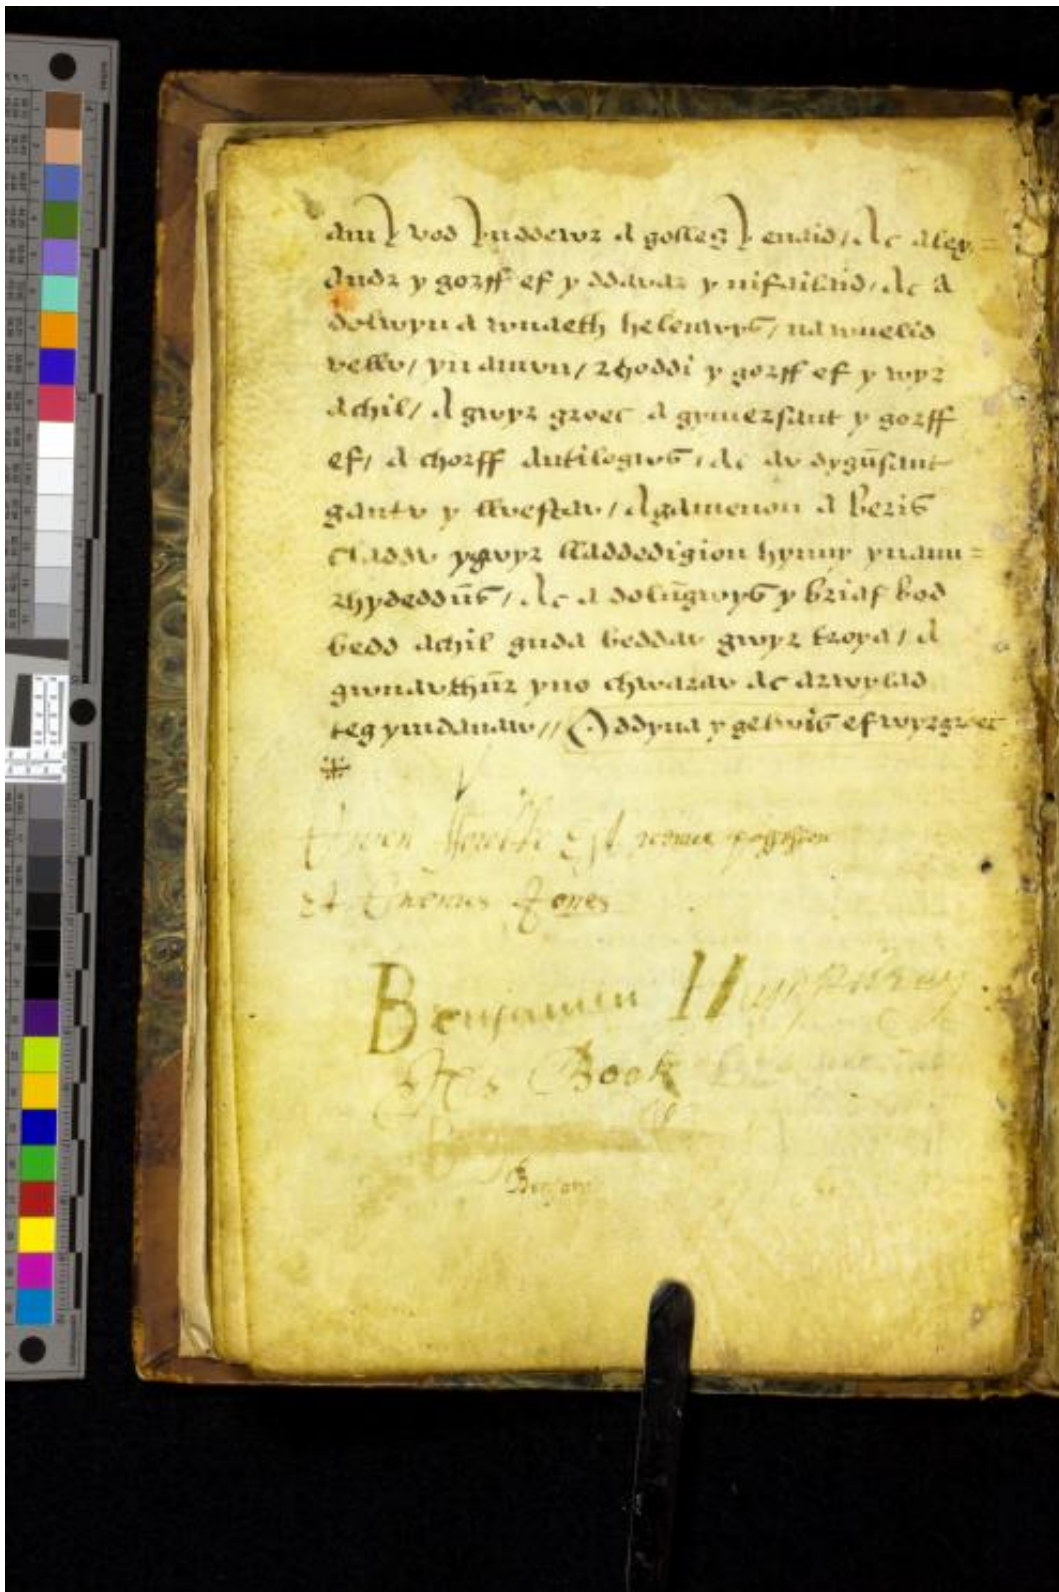 am y vod ynddewr a golles y enaid / Ac alex=
andr y gorff ef y ddavar y nifailaid / Ac a
dolwyn a wnaeth helenwys / na wnelid
vellv / yn amvn / rhoddi y gorff ef y wyr
achil / A gwyr groec a gymersant y gorff
ef / a chorff antilogws / ac av dygūsant
gantv y llvestav / Agamenon a beris
claddv ygwyr lladdedigion hynny ynann=
rhydeddūs / Ac a dolūgwys y briaf bod
bedd achil gnda beddav gwyr troya / a
gwnavthūr yno chwarav ac arwylad
teg ymdanaw // Oddyna y gelwis ef wyrgroec
Est
Et Thomas Jones
Benjamin Humphrey
His Book
Benjam